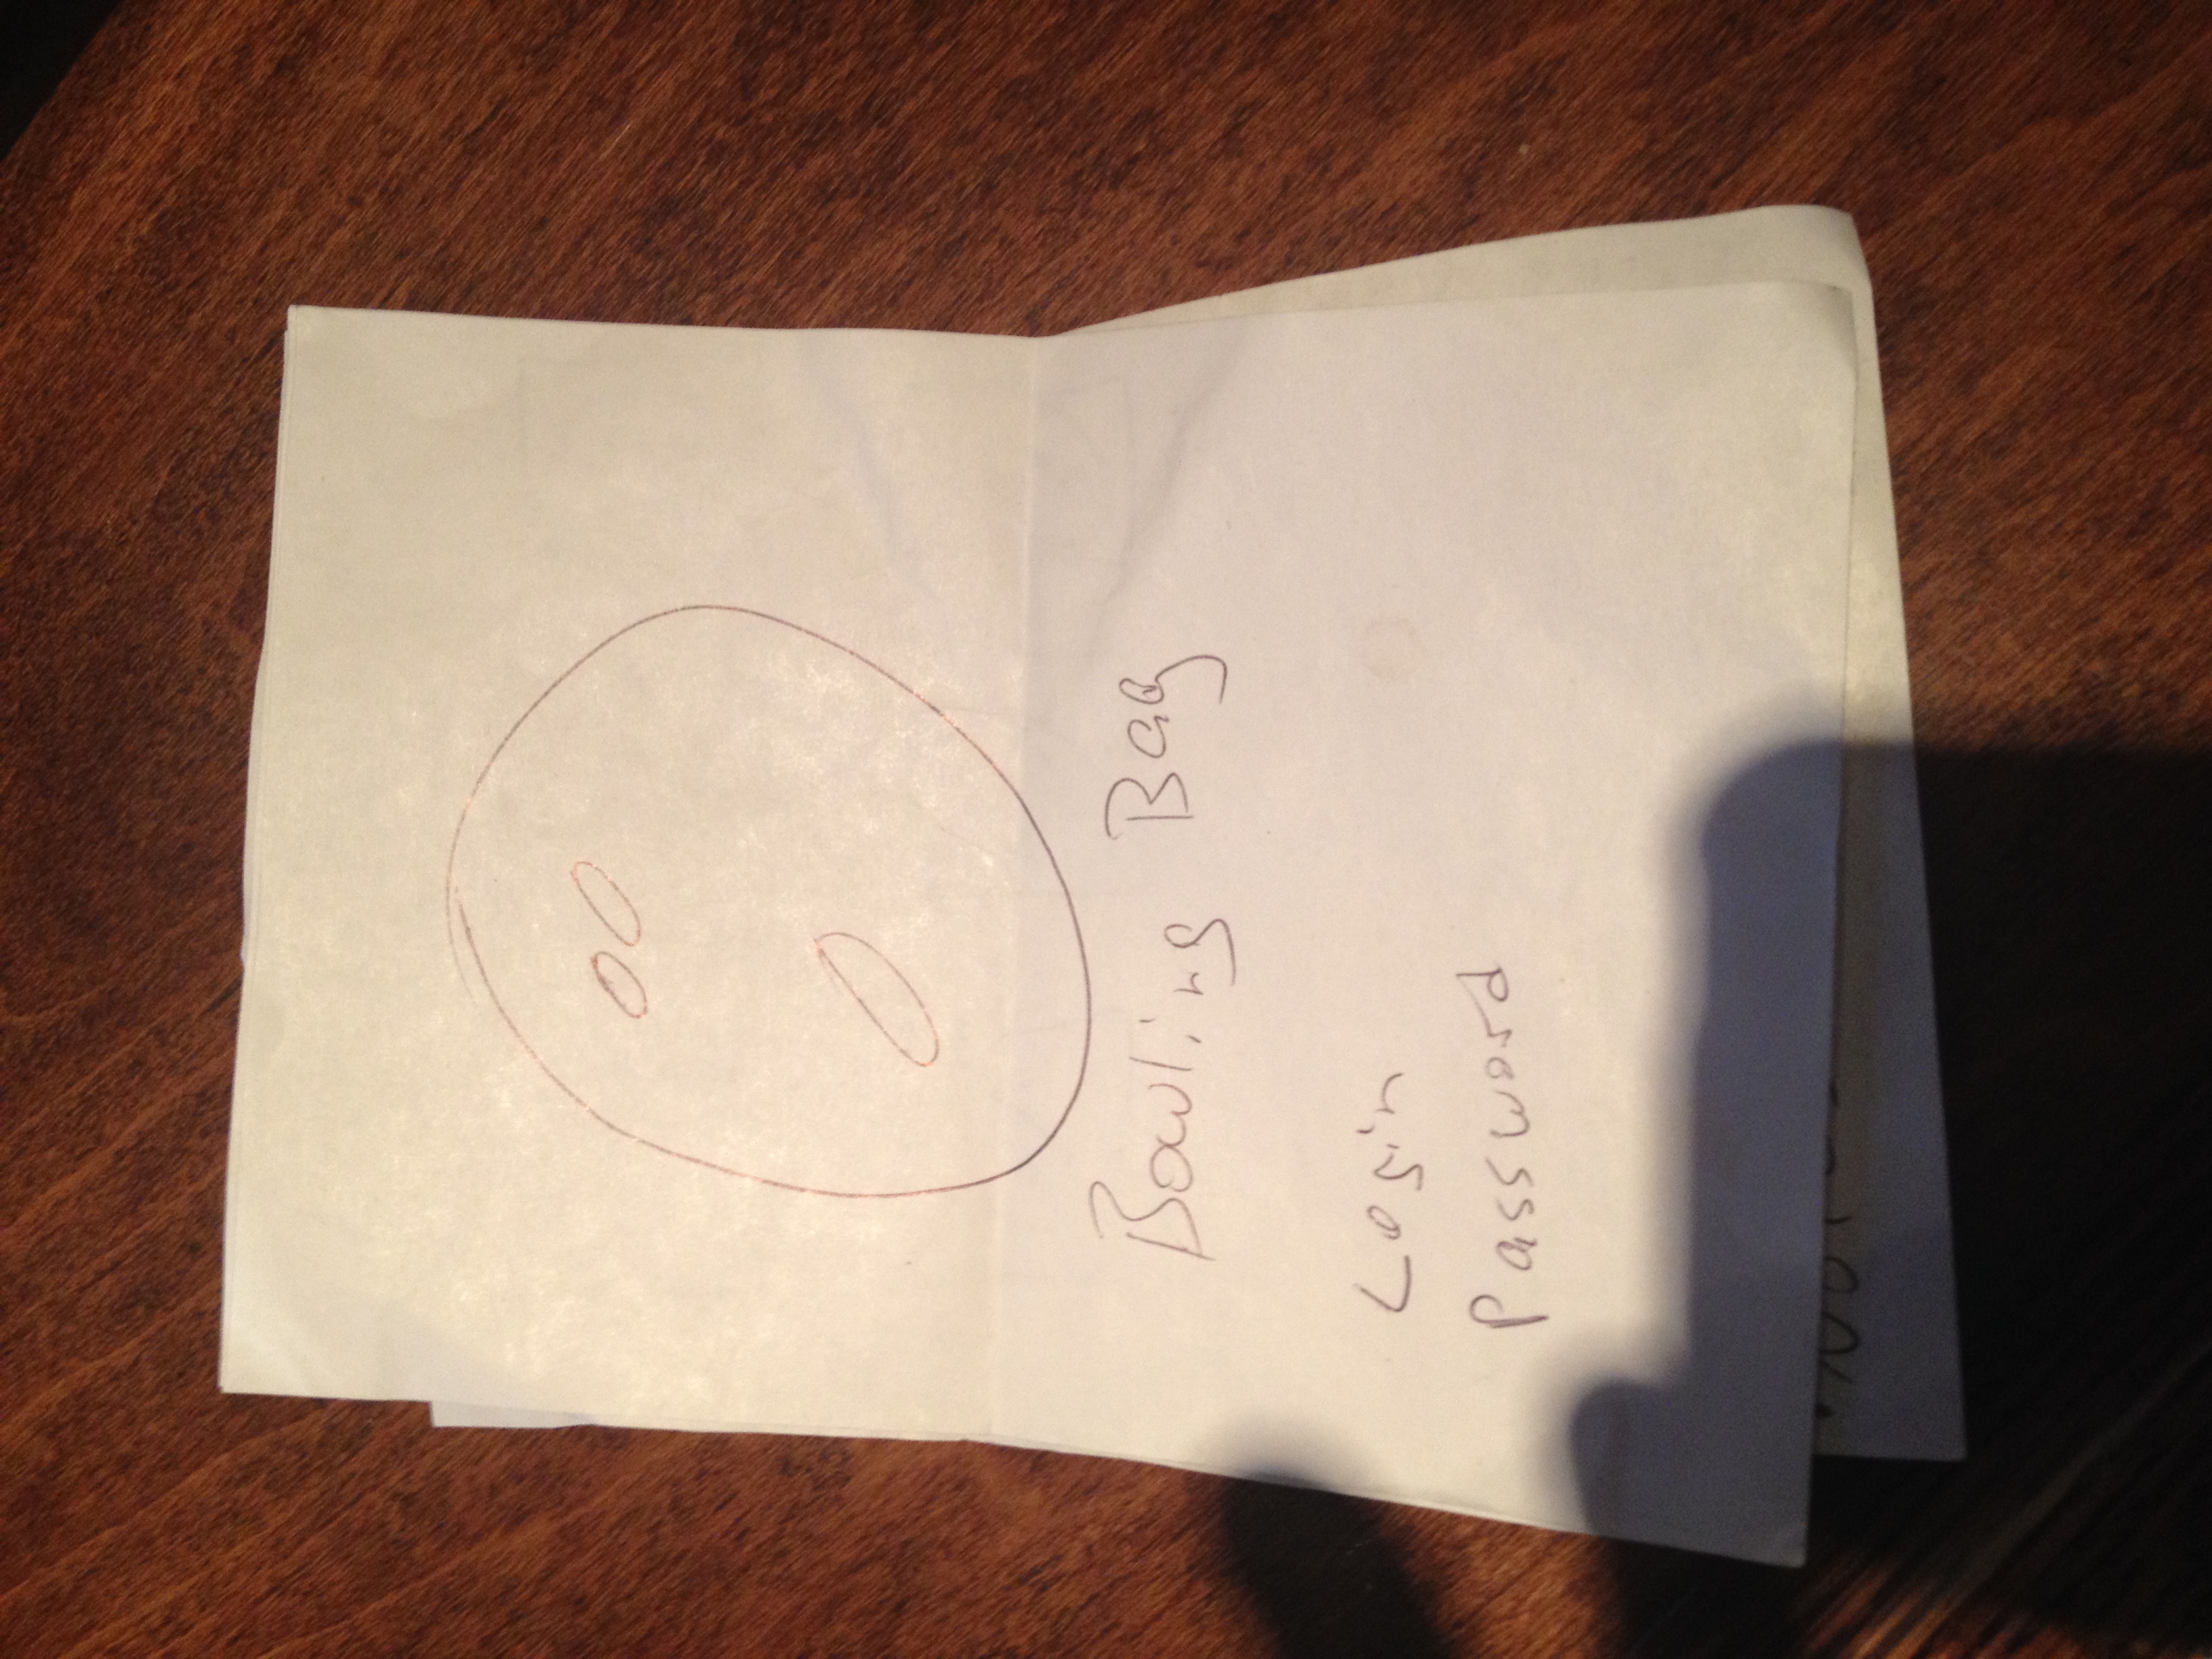 Bowling Bag
Login
Password